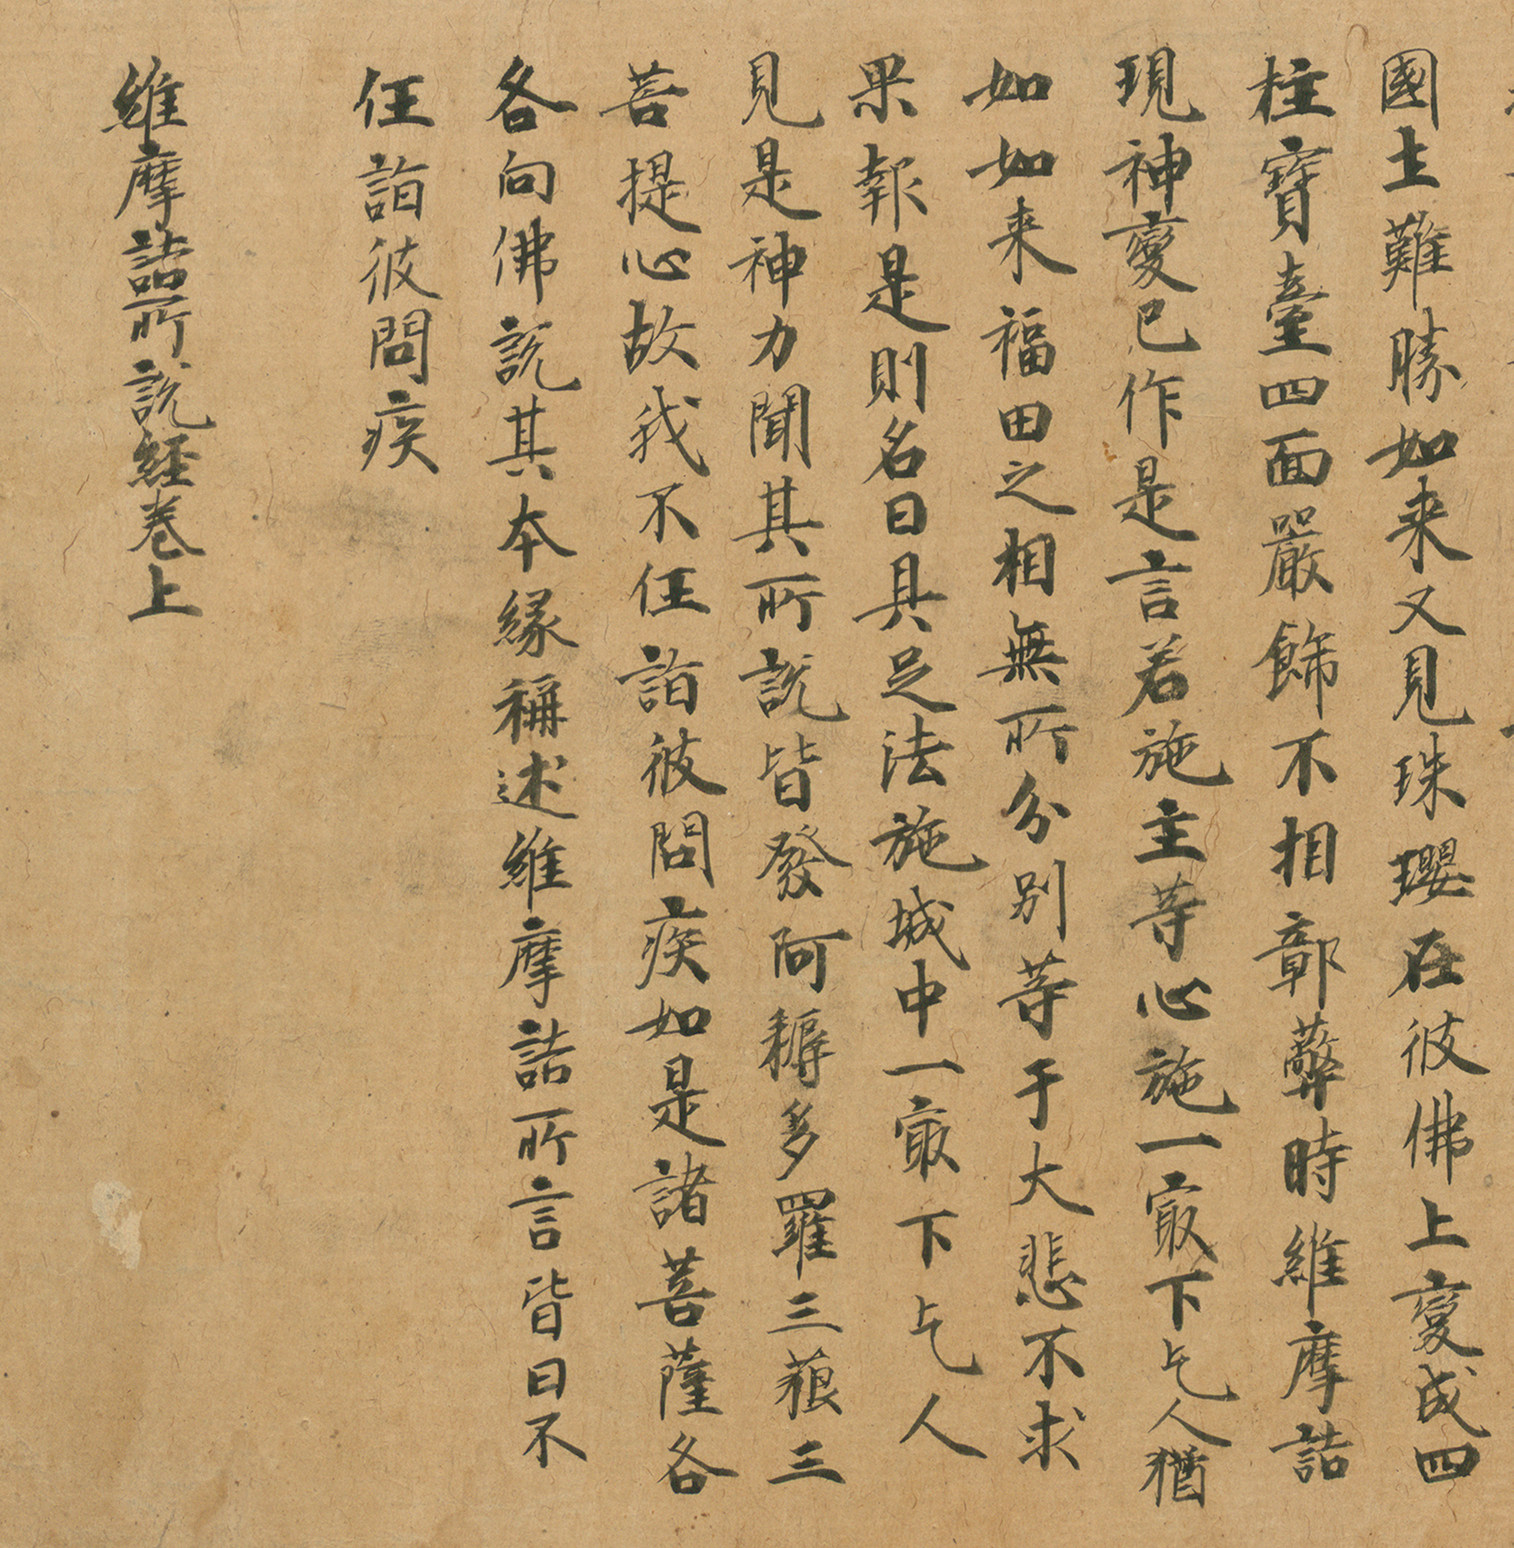 國土難勝如来又見珠瓔在彼佛上變成四
柱寶臺四面嚴飾不相鄣蔽時維摩詰
現神變已作是言若施主等心施一最下乞人猶
如如来福田之相無所分别等于大悲不求
果報是則名曰具足法施城中一最下乞人
見是神力聞其所說皆發阿耨多羅三藐三
菩提心故我不任詣彼問疾如是諸菩薩各
各向佛說其本緣稱述維摩詰所言皆曰不
任詣彼問疾
維摩詰所說經卷上